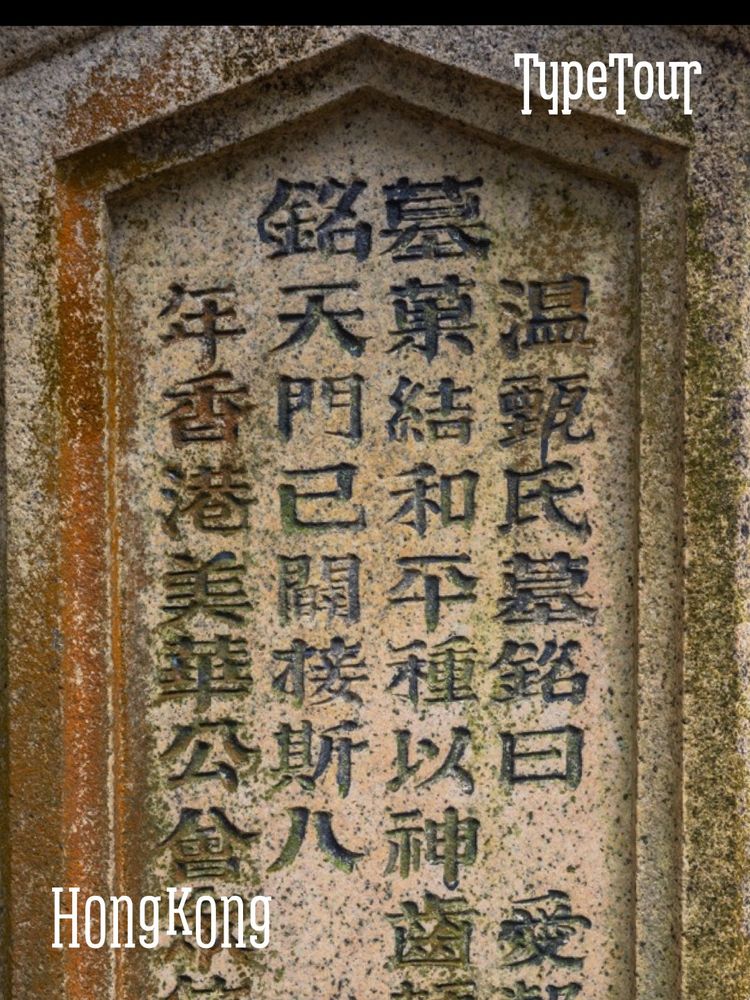 TypeTour
墓銘
温甄氏墓銘曰 愛
菓結和平種以神齒
天門已闢接斯八
年香港美華公會
HongKong